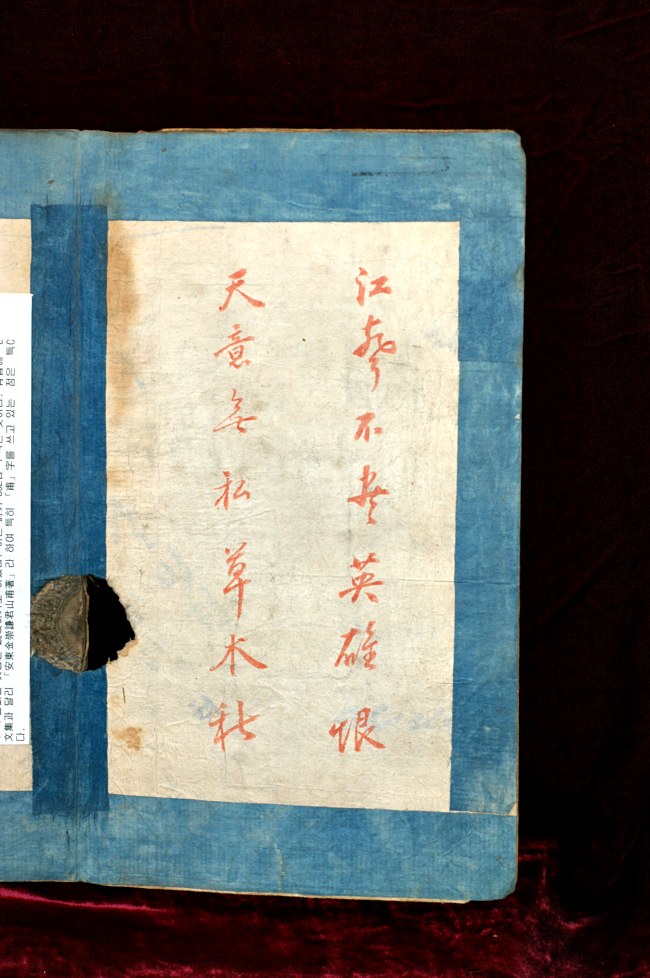 江聲不盡英雄恨
天意無私草木秋
文集과 달리 「安東金崇謙君山甫著」라 하여 특히 「甫」字를 쓰고 있는 점은 특
다.